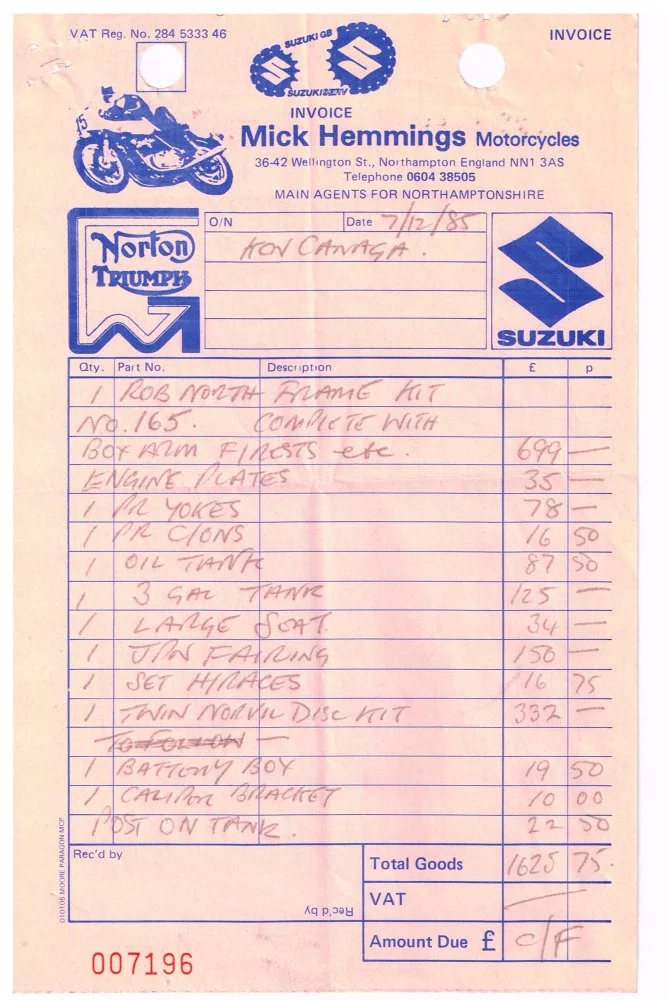 VAT Reg. No. 284 5333 46
INVOICE
SUZUKI GB
INVOICE
Mick Hemmings Motorcycles
36-42 Wellington St., Northampton England NN1 3AS
Telephone 0604 38505
MAIN AGENTS FOR NORTHAMPTONSHIRE
O/N Date 7/12/85
Norton
TRIUMPH
SUZUKI
Qty. Part No. Description £ p
1 ROB NORTH FRAME KIT
NO. 165. COMPLETE WITH
BOX ARM F/RESTS etc. 699 —
ENGINE PLATES 35 —
1 PR YOKES 78 —
1 PR C/ONS 16 50
1 OIL TANK 87 50
1 3 GAL TANK 125 —
1 LARGE SEAT. 34 —
1 FAIRING 150 —
1 SET H/RACES 16 75
1 TWIN NORVIL DISC KIT 332 —
TO FOLLOW —
1 BATTERY BOX 19 50
1 CALIPER BRACKET 10 00
POST ON TANK. 22 50
Rec'd by
Total Goods 1625 75.
VAT —
Rec'd by
Amount Due £ C/F
007196
010105 MOORE PARAGON MCP